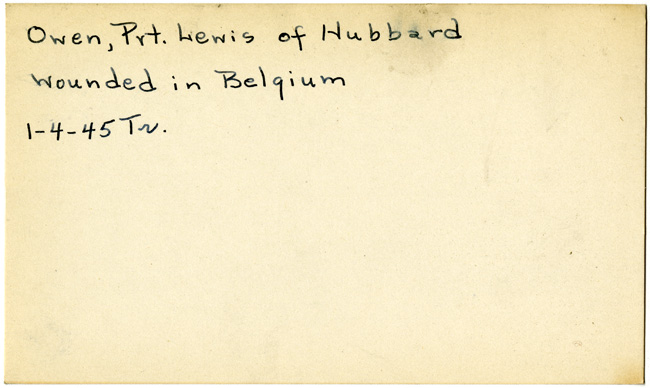 Owen, Prt. Lewis of Hubbard
Wounded in Belgium
1-4-45 Tr.